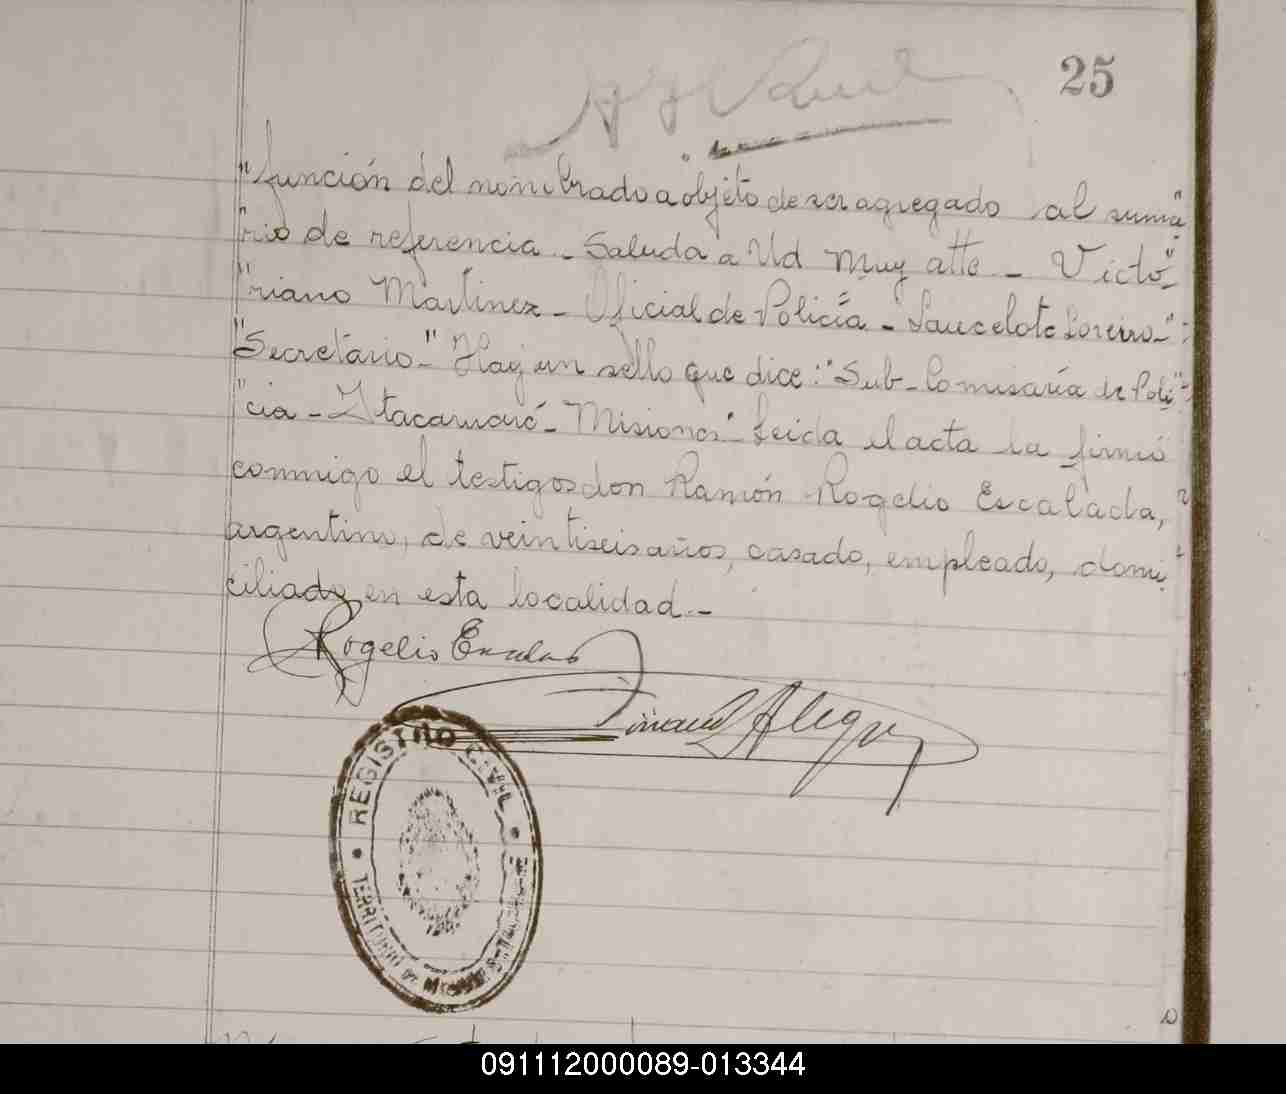 25
"función del nombrado a objeto de ser agregado al suma"
"rio de referencia._ Saluda a Ud muy atte _ Victo_"
"riano Martinez _ Oficial de Policía _ Lancelote Loreiro_"
"Secretario_" Hay un sello que dice: "Sub-Comisaría de Poli"
"cia _ Itacaruaré _ Misiones" Leida el acta la firmó
conmigo el testigo don Ramón Rogelio Escalada,
argentino, de veintiseis años, casado, empleado, domi
ciliado en esta localidad._
Rogelio Escalada
Alegre
REGISTRO CIVIL
TERRITORIO DE MISIONES
091112000089-013344